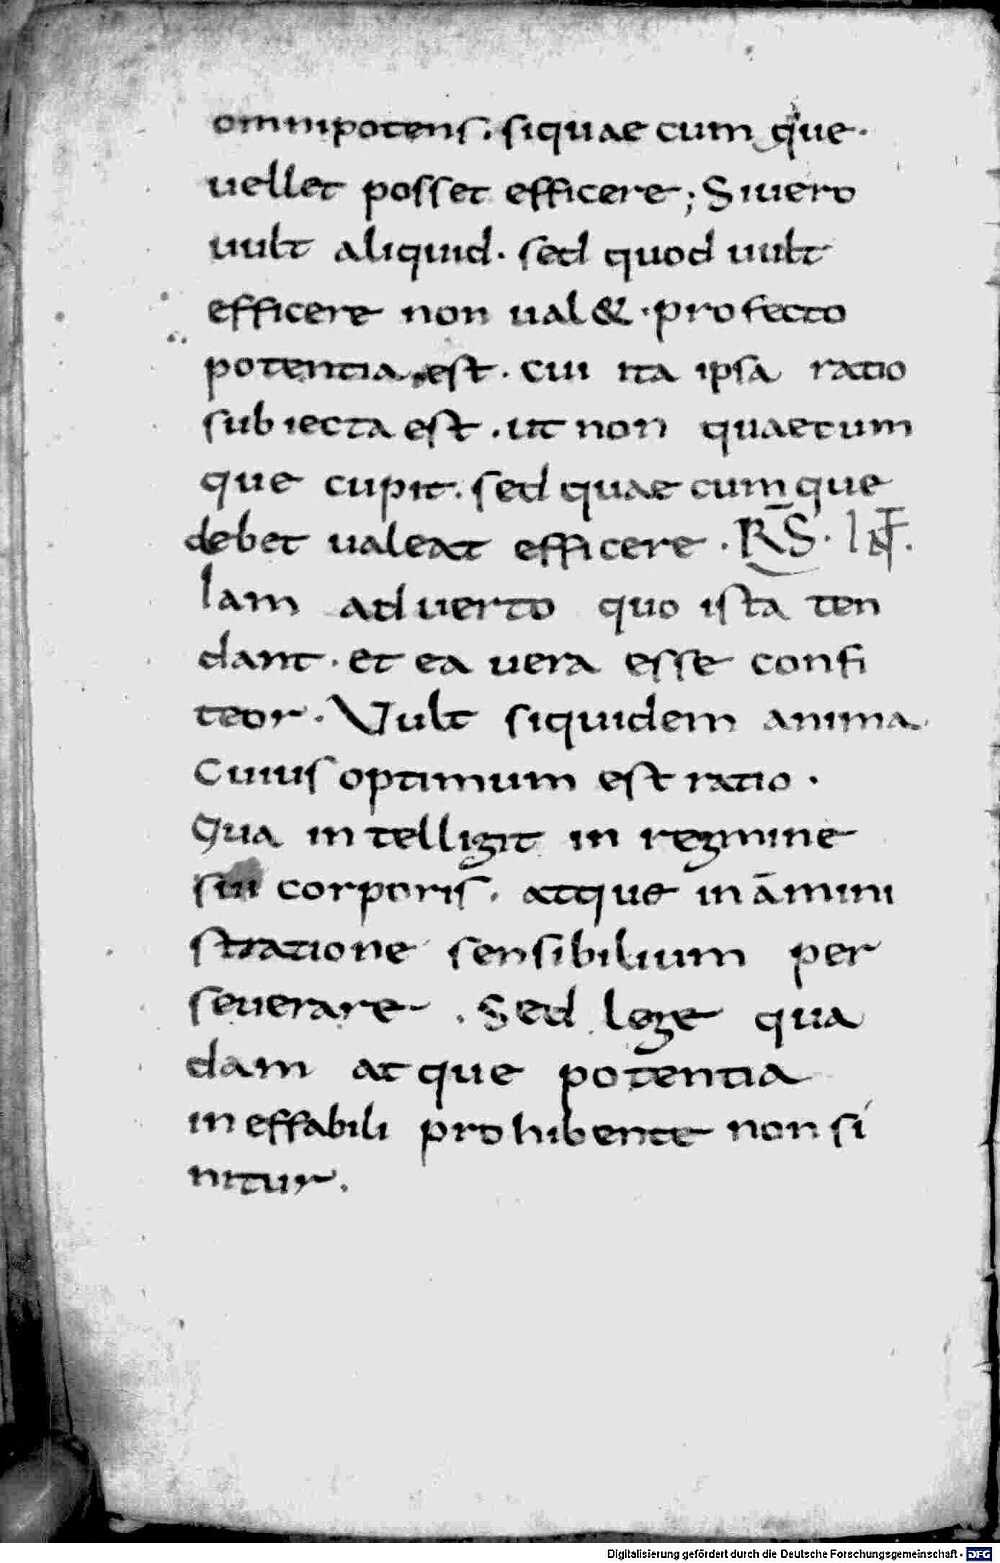 omnipotens. siquae cum que.
uellet posset efficere; Siuero
uult aliquid. sed quod uult
efficere non ual&. profecto
potentia est. cui ita ipsa ratio
subiecta est. ut non quaecum
que cupit. sed quae cumque
debet ualeat efficere. RS.
Iam aduerto quo ista ten
dant. et ea uera esse confi
teor. Uult siquidem anima.
Cuius optimum est ratio.
Qua intelligit in regimine
sui corporis. atque in āmini
stratione sensibilium per
seuerare. Sed lege qua
dam atque potentia
ineffabili prohibente non si
nitur.
Digitalisierung gefördert durch die Deutsche Forschungsgemeinschaft - DFG